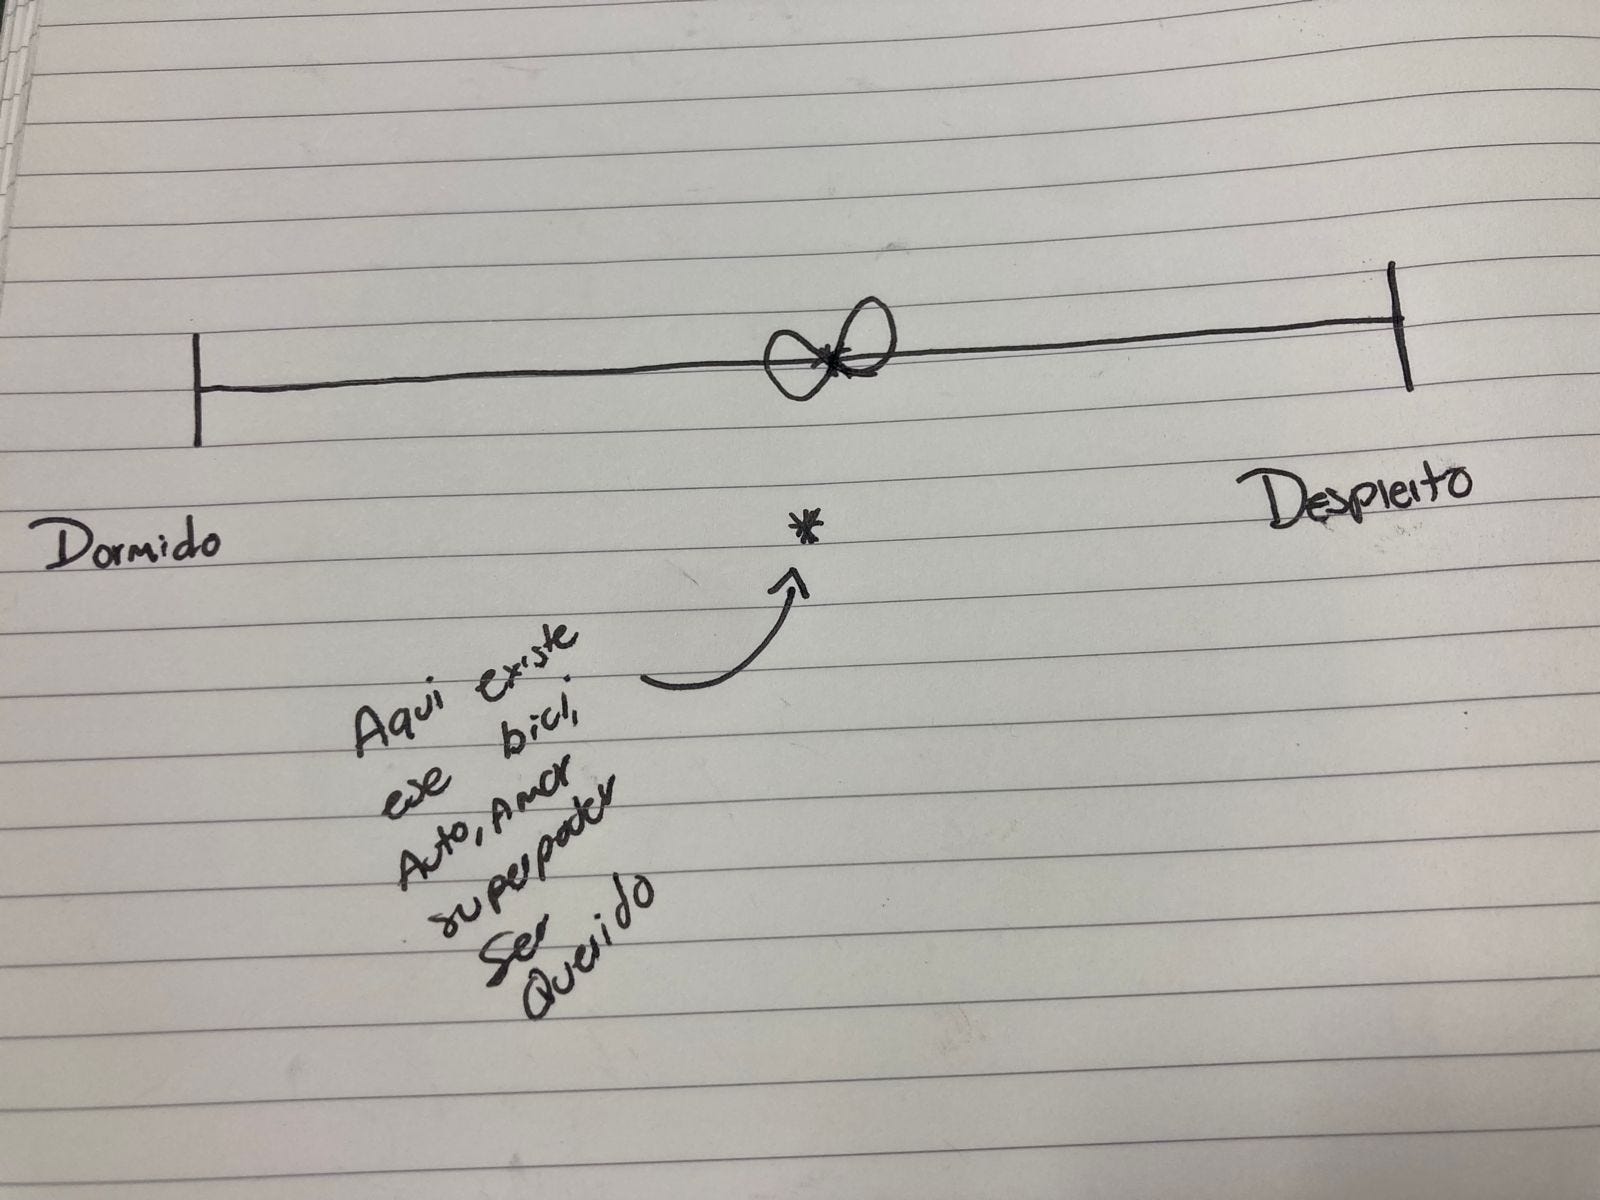 Dormido
Despieto
*
Aqui existe
ese bici,
Auto, Amor
superpoder
Ser
Querido